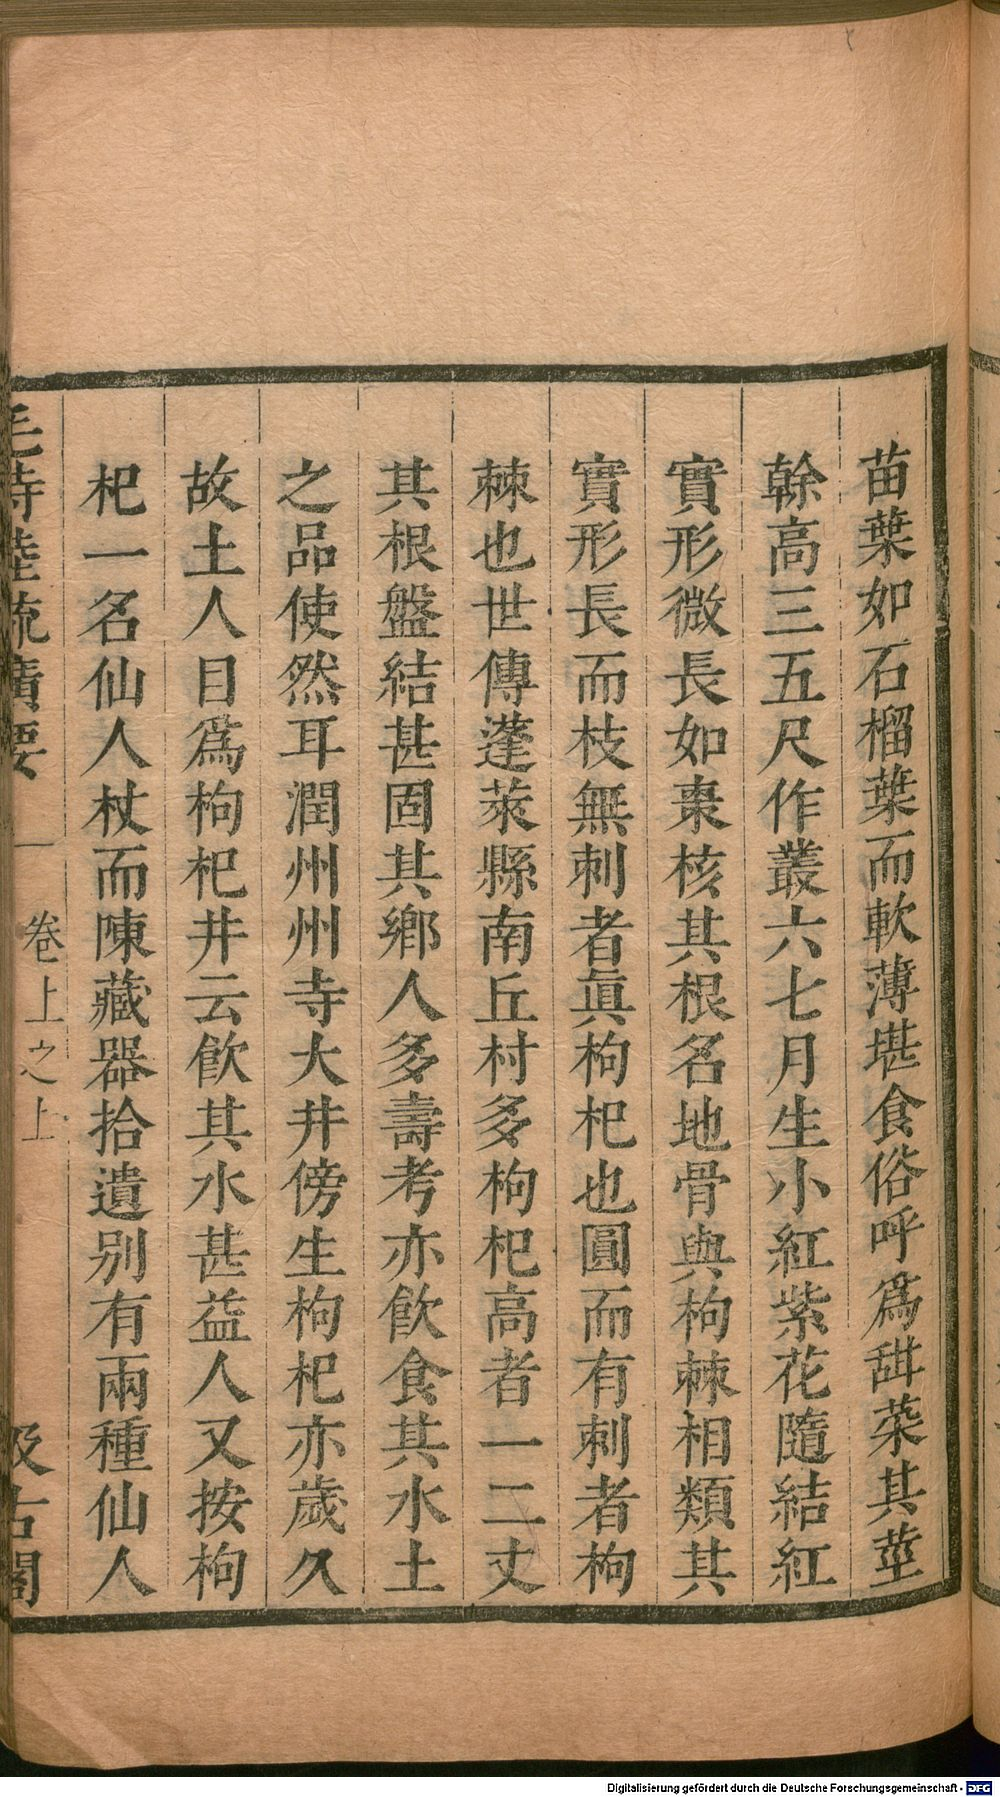 苗葉如石榴葉而軟薄堪食俗呼爲甜菜其莖
幹高三五尺作叢六七月生小紅紫花隨結紅
實形微長如棗核其根名地骨與枸棘相類其
實形長而枝無刺者眞枸杞也圓而有刺者枸
棘也世傳蓬萊縣南丘村多枸杞高者一二丈
其根盤結甚固其鄉人多壽考亦飮食其水土
之品使然耳潤州州寺大井傍生枸杞亦歲久
故土人目爲枸杞井云飮其水甚益人又按枸
杞一名仙人杖而陳藏器拾遺別有兩種仙人
毛詩陸疏廣要 卷上之上 汲古閣
Digitalisierung gefördert durch die Deutsche Forschungsgemeinschaft - DFG